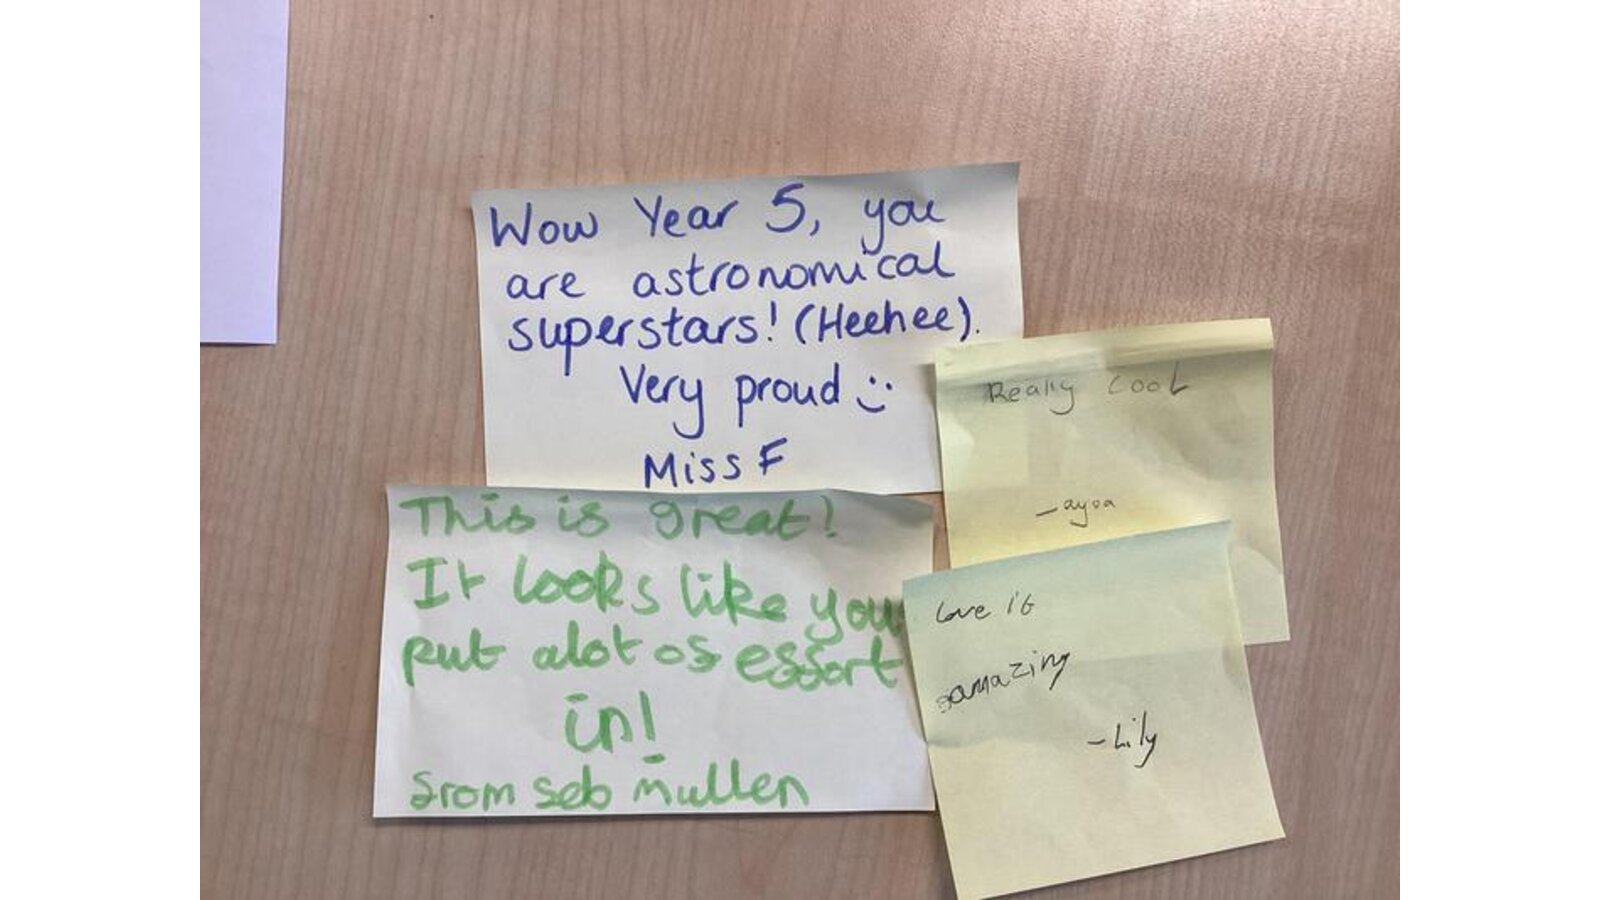 Wow Year 5, you
are astronomical
superstars! (Heehee).
Very proud :)
Miss F
This is great!
It looks like you
put alot of effort
in!
from seb mullen
Really cool
- ayoa
Love it
amazing
- Lily